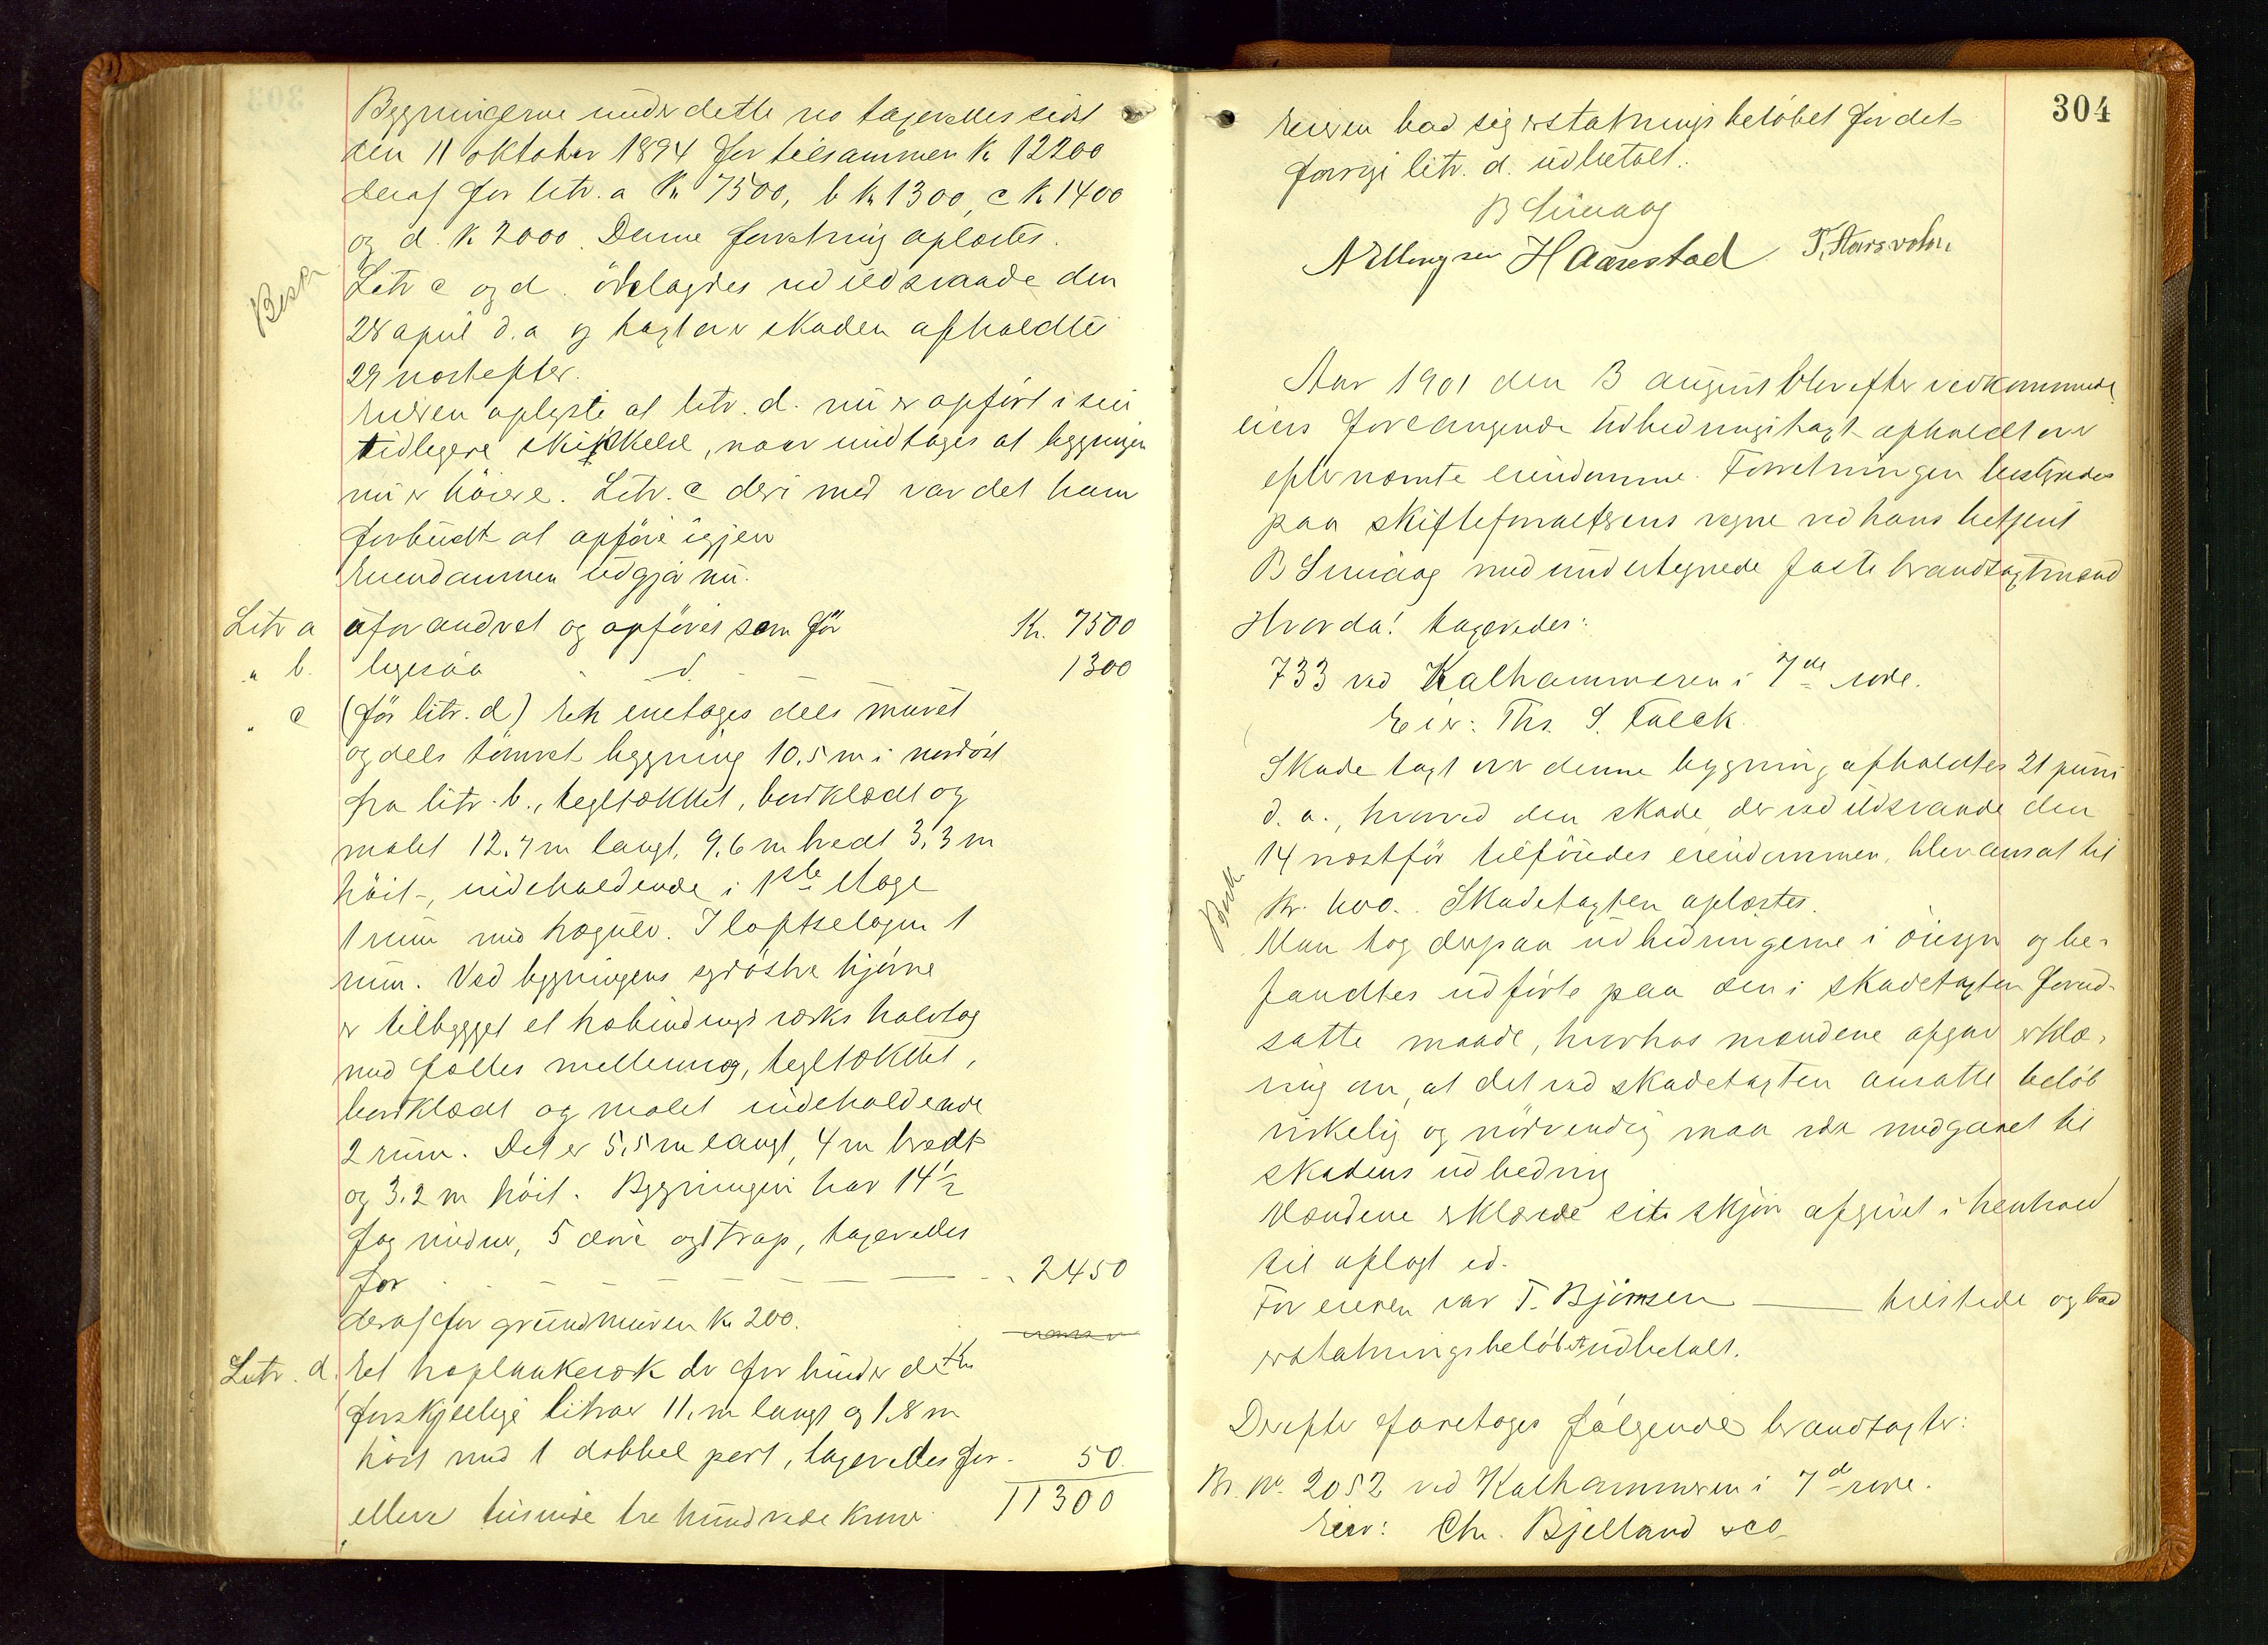 Bygningerne under dette no taxeredes sidst
den 11 oktober 1894 for tilsammen k 12200
deraf for litr. a Kr 7500, b kr 1300, c kr 1400
og d. k 2000. Denne forretning oplæstes.
Beskr.
Litr c og d. ödelagdes ved ildsvaade den
28 april d.a og taxt over skaden afholdtes
29 næstefter.
Eieren oplyste at litr. d. nu er opført i sin
tidligere skikkelse, naar undtages at bygningen
nu er höiere. Litr. c derimod var det ham
forbudt at opföre igjen
Eiendommen udgjør nu.
Litr a uforandret og opføres som før Kr. 7500
" b. ligesaa - d. - 1300
" c (før litr. d) Et enetages dels muret
og dels tömret bygning 10.5 m i nordöst
fra litr. b., tegltækket, bordklædt og
malet 12.7 m langt, 9.6 m bredt 3.3 m
höit, indeholdende i 1ste etage
1 rum med trægulv. I loftsetagen 1
rum. Ved bygningens sydöstre hjörne
er tilbygget et træbindingsværks halvtag
med fælles mellemvæg, tegltækket,
bordklædt og malet indeholdende
2 rum. Det er 5.5 m langt, 4 m bredt
og 3.2 m höit. Bygningen har 14 1/2
fag vinduer, 5 döre og 1 trap, taxeredes
for - - - - - 2450
deraf for grundmuren kr 200.
Litr. d. Et træplankeværk der forbinder de
forskjellige litraer 11. m langt og 1.8 m
höit med 1 dobbel port, taxeredes for - 50.
elleve tusinde tre hundrede kroner 11300
304
Eieren bad sig erstatningsbeløbet for det
forrige litr. d. udbetalt.
B Sunaag
N Ellingsen H Aarestad T. Stensvoln
Aar 1901 den 13 august blev efter vedkommende
eiers forlangende udbedringstaxt afholdt over
efternævnte eiendomme. Forretningen bestyredes
paa skifteforvalterens vegne ved hans betjent
B Sunaag med undertegnede faste brandtaxtmænd
Hvorda! taxeredes:
733 ved Kalhammeren i 7de rode.
Eier: Ths. S. Falck.
Skadetaxt over denne bygning afholdtes 21 juni
d. a., hvorved den skade, der ved ildsvaade den
14 næstfør tilföiedes eiendommen, blev ansat til
Besk.
kr. 600. Skadetaxten oplæstes.
Man tog derpaa udbedringerne i öiesyn og be-
fandtes udførte paa den i skadetaxten forud-
satte maade, hvorhos mændene afgav erklæ-
ring om, at det ved skadetaxten ansatte beløb
virkelig og nødvendig maa være medgaaet til
skadens udbedring
Mændene erklærede sit skjøn afgivet i henhold
til aflagt ed.
For eieren var T. Björnsen — tilstede og bad
erstatningsbeløbet udbetalt.
Derefter foretoges følgende brandtaxter:
Br. no. 2052 ved Kalhammeren i 7d rode.
Eier: Chr. Bjelland & Co